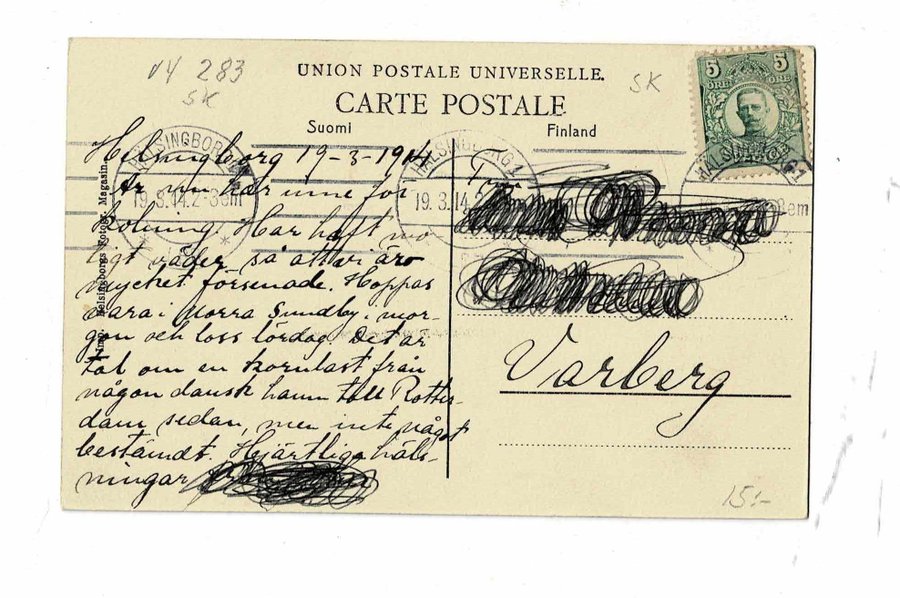 v4 283
SK
UNION POSTALE UNIVERSELLE.
CARTE POSTALE
Suomi
Finland
SK
5 5
ÖRE ÖRE
HÄLSINGBORG 1
19.3.14.2-3em
HÄLSINGBORG 1
19.3.14.2
Helsingborg 19-3-1914
Är nu här inne för
kolning. Har haft mo-
ligt väder så att vi äro
mycket försenade. Hoppas
vara i Norra Sundby i mor-
gon och loss lördag. Det är
tal om en kornlast från
någon dansk hamn till Rotter-
dam sedan, men inte något
bestämdt. Hjärtliga häls-
ningar
Varberg
Helsingborgs Fotogr. Magasin.
15:-